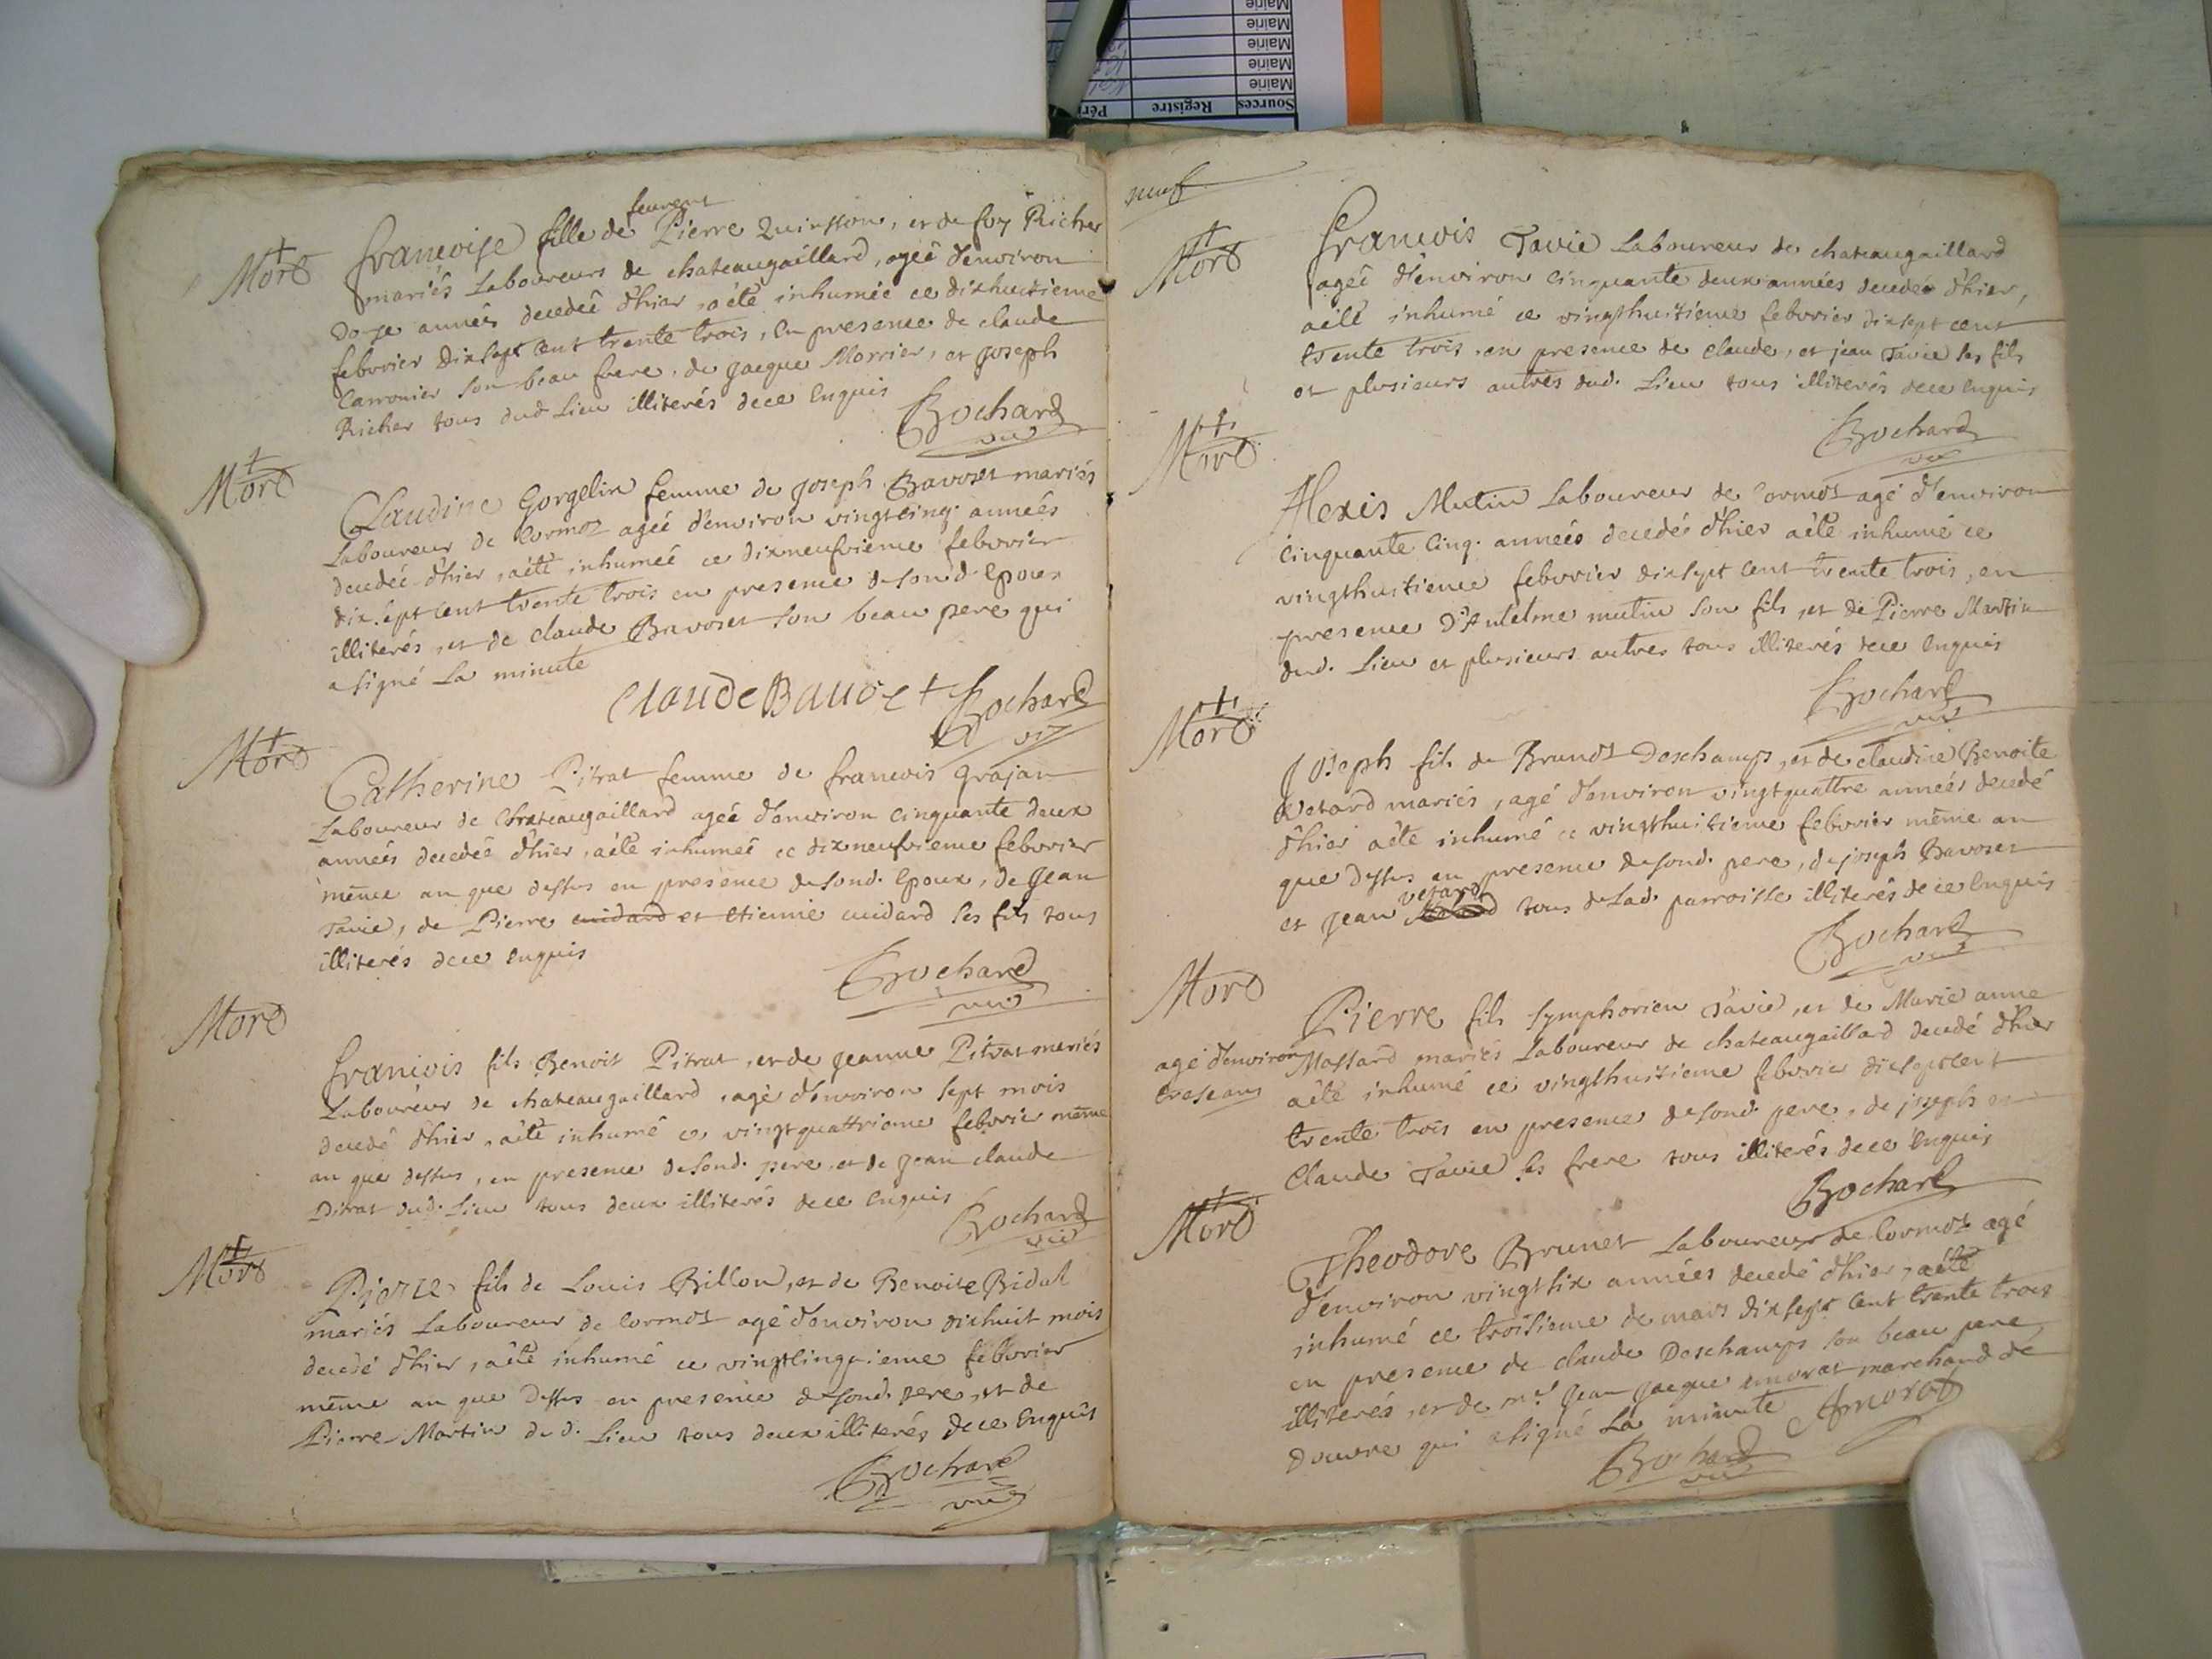 Mort
francoise fille de feurent Pierre Quinsson, et de foy Richer
mariés Laboureurs de chateaugaillard, ageé d'environ
douze années decedeé d'hier, aété inhumeé ce dixhuitieme
febvrier dixsept cent trente trois, en presence de claude
Carronier son beau frere, de jacque Morrier, et joseph
Richer tous dud Lieu illiterés dece enquis
Bochard
vic
Mort
Claudine Gorgelin femme de joseph Bavozet mariés
Laboureur de Cormoz ageé d'environ vingtcinq. années
decedeé d'hier, aété inhumeé ce dixneufvieme febvrier
dixsept cent trente trois en presence de son d. Epoux
illiterés, et de claude Bavozet son beau pere qui
a signé La minute
Claude Bauoze t Bochard
vic
Mort
Catherine Pitrat femme de francois grajan
Laboureur de Chateaugaillard ageé d'environ cinquante deux
années decedeé d'hier, aété inhumeé ce dixneufvieme febvrier
même an que dessus en presence de sond. Epoux, de Jean
Tavie, de Pierre cuidard et Etienne cuidard ses fils tous
illiterés dece enquis
Bochard
vic
Mort
francois fils Benoit Pitrat, et de jeanne Pitrat mariés
Laboureur de chateaugaillard, agé d'environ sept mois
decedé d'hier, aété inhumé ce vingtquattrieme febvrier même
an que dessus, en presence de sond. pere, et de jean claude
Pitrat dud. Lieu tous deux illiterés dece enquis
Bochard
vic
Mort
Pierre fils de Louis Billon, et de Benoite Bidal
mariés Laboureur de Cormoz agé d'environ dixhuit mois
decedé d'hier, aété inhumé ce vingtcinquieme febvrier
même an que dessus en presence de sond. pere, et de
Pierre Martin dud. Lieu tous deux illiterés dece enquis
Bochard
vic
neuf
Mort
francois Tavie Laboureur de chateaugaillard
ageé d'environ cinquante deux années decedé d'hier,
aété inhumé ce vingthuitieme febvrier dixsept cent
trente trois, en presence de claude, et jean Tavie ses fils
et plusieurs autres dud. Lieu tous illiterés dece enquis
Bochard
vic
Mort
Alexis Mutin Laboureur de Cormoz agé d'environ
cinquante cinq. années decedés d'hier aété inhumé ce
vingthuitieme febvrier dixsept cent trente trois, en
presence D'Antelme mutin son fils, et de Pierre Martin
dud. Lieu et plusieurs autres tous illiterés dece enquis
Bochard
vic
Mort
Joseph fils de Brunot Deschamps, et de claudine Benoite
Vetard mariés, agé d'environ vingtquattre années decedé
d'hier aété inhumé ce vingthuitieme febvrier même an
que dessus en presence de sond. pere, de joseph Bavozet
et jean vetard tous de Lad. parroisse illiterés dece enquis
Bochard
vic
Mort
Pierre fils symphorien Tavie, et de Marie anne
agé d'environ Massard mariés Laboureur de chateaugaillard decedé d'hier
treseans aété inhumé ce vingthuitieme febvrier dixseptcent
trente trois en presence de sond. pere, de joseph et
Claude Tavie ses frere tous illiterés dece enquis
Bochard
Mort
Theodore Brunet Laboureur de Cormoz agé
d'environ vingtsix années decedé d'hier, aété
inhumé ce troisieme de mars dixsept cent trente trois
en presence de claude Deschamps son beau pere
illiterés, et de mr. jean jacque amorat marchand de
douvre qui a signé La minute Amorat
Bochard
vic
Sources Registre Péri
Mairie
Mairie
Mairie
Mairie
Mairie